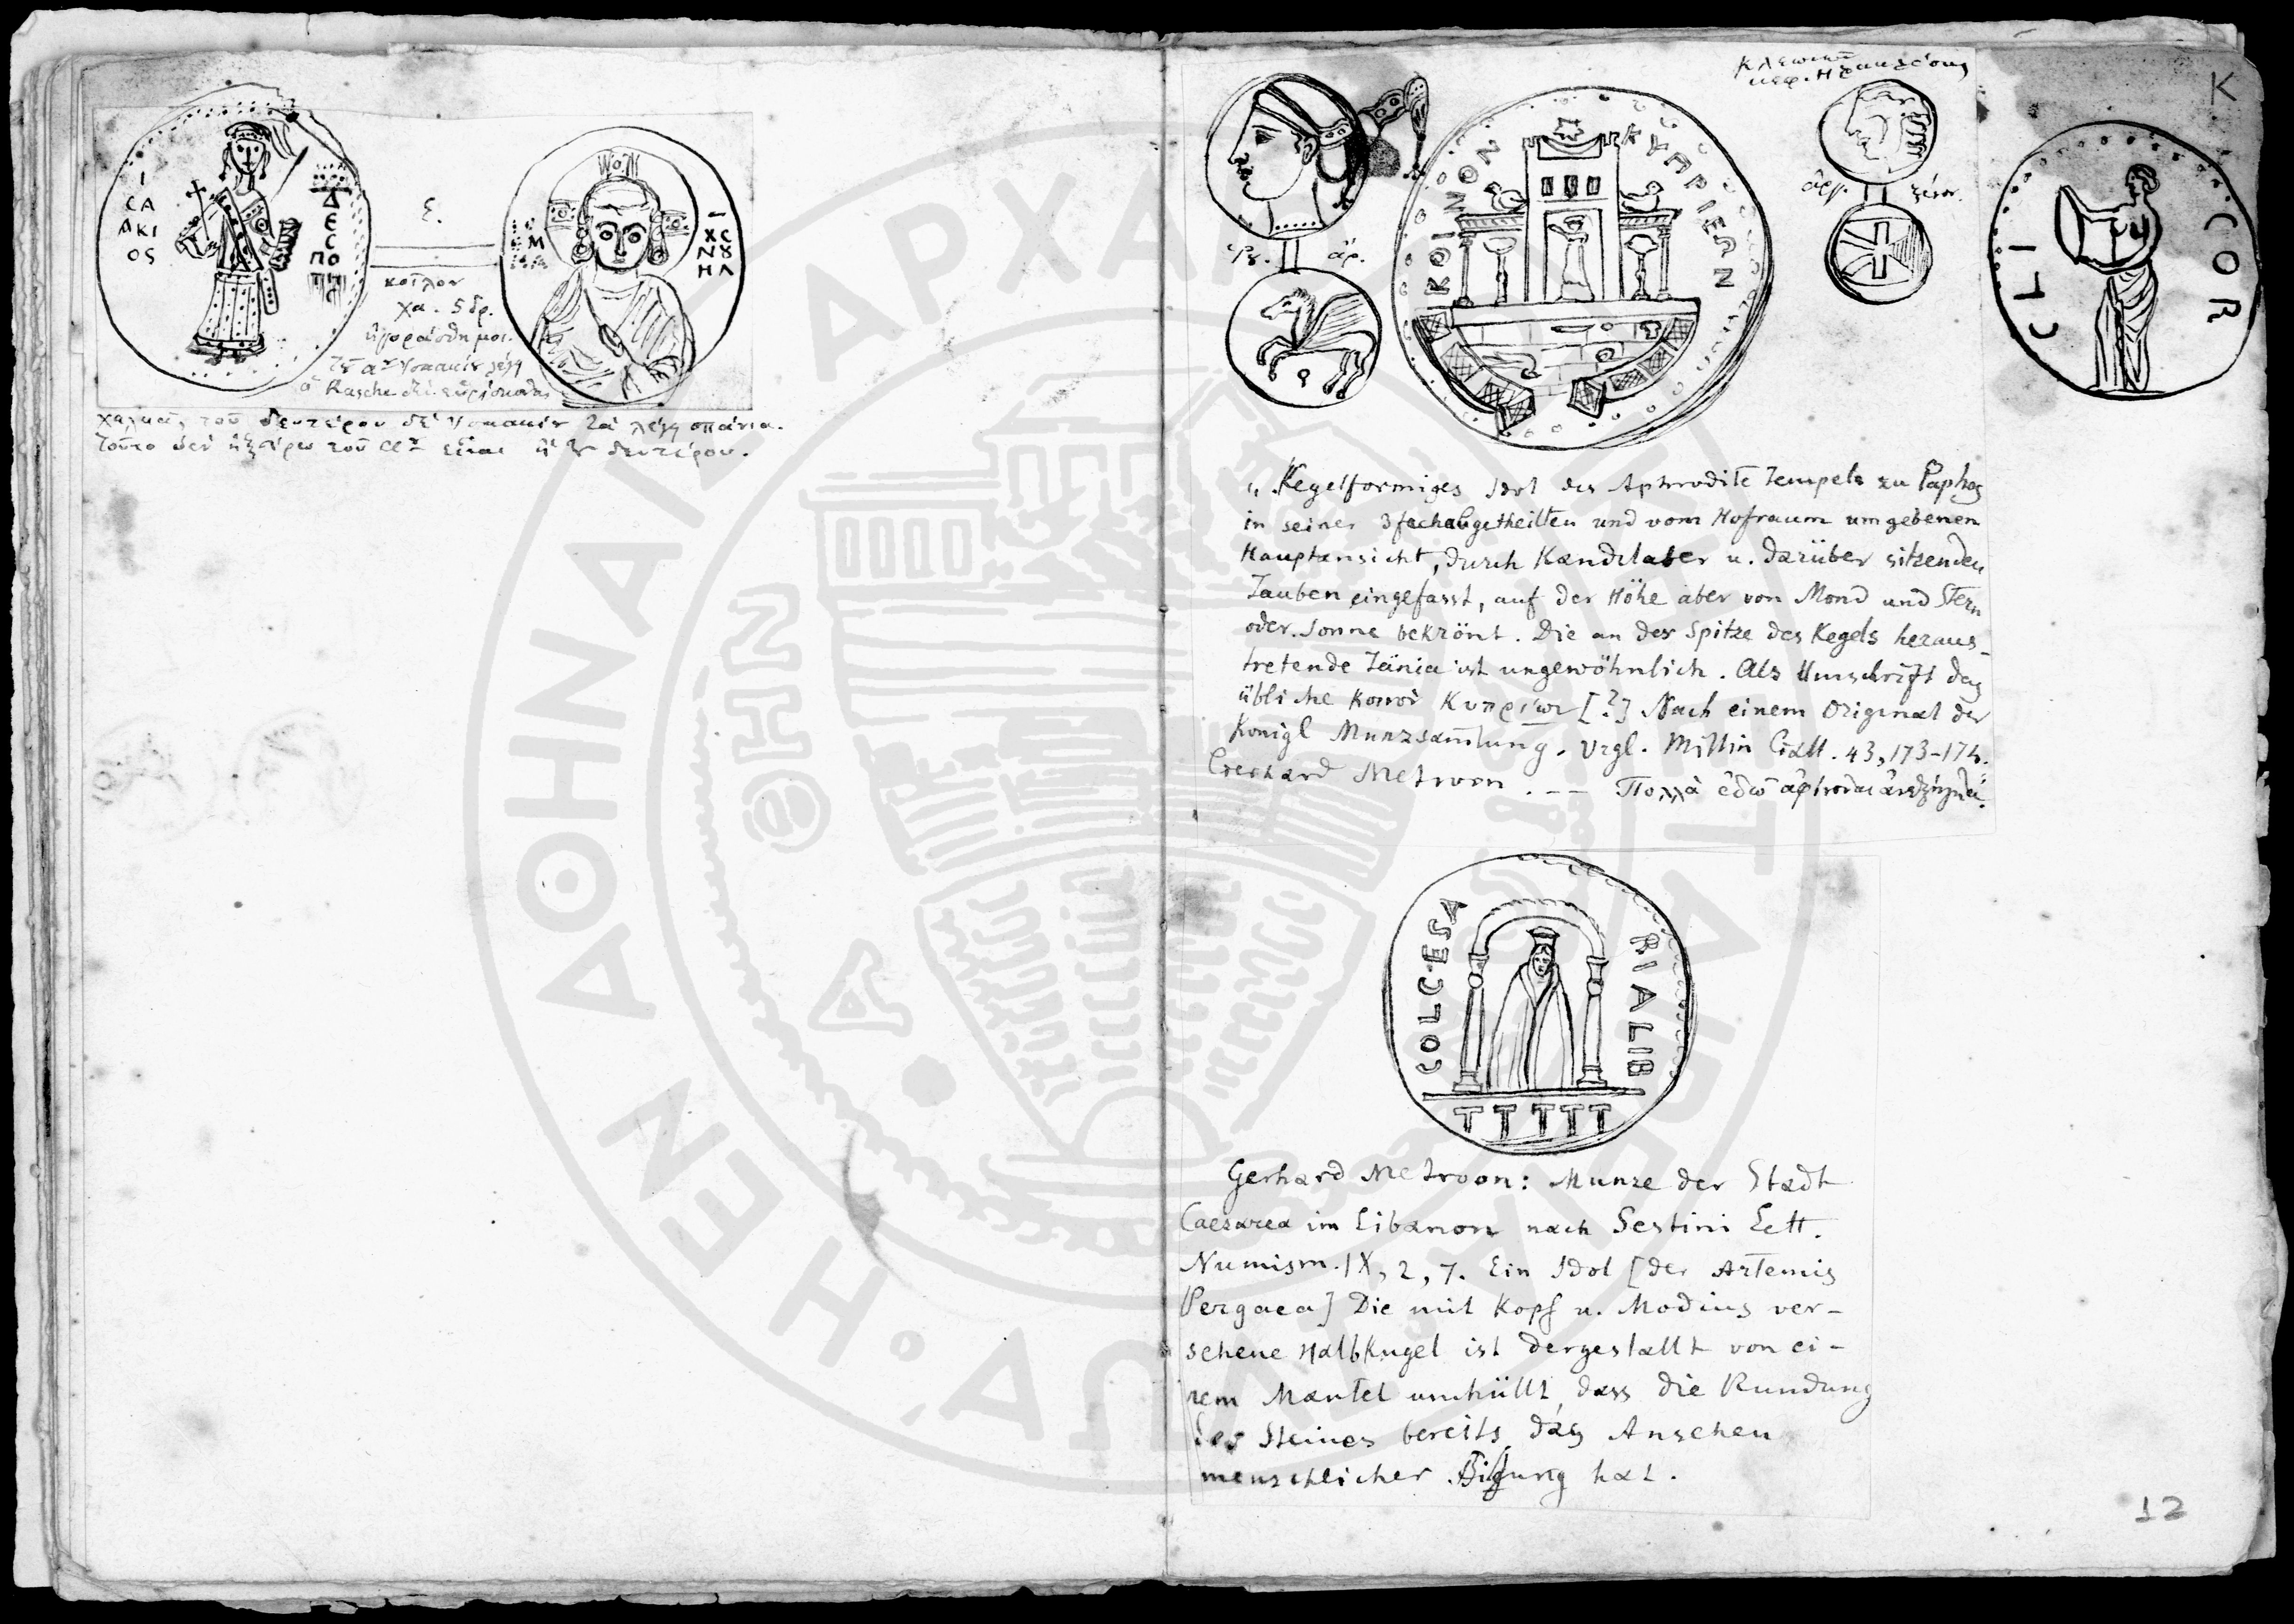 Ι
CΑ
ΑΚΙ
ΟΣ
Δ
Ε
С
ΠΟ
ξ.
κοῖλον
χα. 5 δρ.
ἠγοράσθη μοι.
Rasche
χαλκᾶ, τοῦ δευτέρου δὲ Ἰσαακίου τὰ λέγη σπάνια.
τοῦτο δὲν ἠξεύρω τοῦ αου εἶναι ἢ τοῦ δευτέρου.
Κ
ἀρ.
ΚΟΙΝΟΝ ΚΥΠΡΙΕΩΝ
ἀργ.
CLI COR
„Kegelformiges Idol des Aphrodite Tempels zu Paphos
in seiner 3fachabgetheilten und vom Hofraum umgebenen
Hauptansicht, durch Kandelaber u. darüber sitzenden
Tauben eingefasst, auf der Höhe aber von Mond und Stern
oder Sonne bekrönt. Die an der Spitze des Kegels heraus-
tretende Tänia ist ungewöhnlich. Als Umschrift das
übliche Κοινὸν Κυπρίων [?] Nach einem Original der
Königl Munzsam̅lung. Vrgl. Millin Gall. 43, 173-174.
Gerhard Metroon. — Πολλὰ ἐδῶ ἀφίνονται ἀνεξήγητα.
COLCESA RIALIB
T T T T T
Gerhard Metroon: Munze der Stadt
Caesarea im Libanon nach Sestini Lett.
Numism. IX, 2, 7. Ein Idol [der Artemis
Pergaea] Die mit Kopf u. Modius ver-
sehene Halbkugel ist dergestallt von ei-
nem Mantel umhüllt, dass die Rundung
des Steines bereits das Ansehen
menschlicher Bildung hat.
12
Η ΕΝ ΑΘΗΝΑΙΣ ΑΡΧΑΙΟΛΟΓΙΚΗ ΕΤΑΙΡΕΙΑ